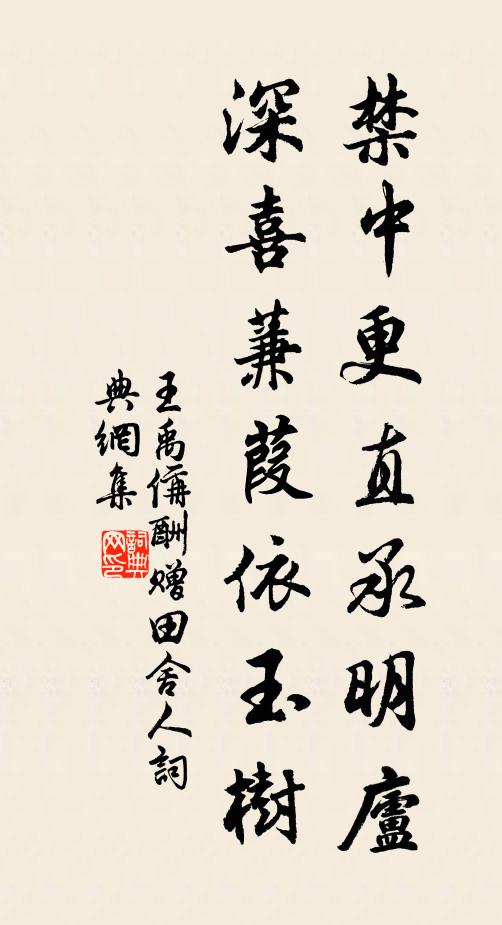 禁中更直承明廬
深喜蒹葭依玉樹
王禹偁酬贈田舍人詞
典網集
詞典
网印